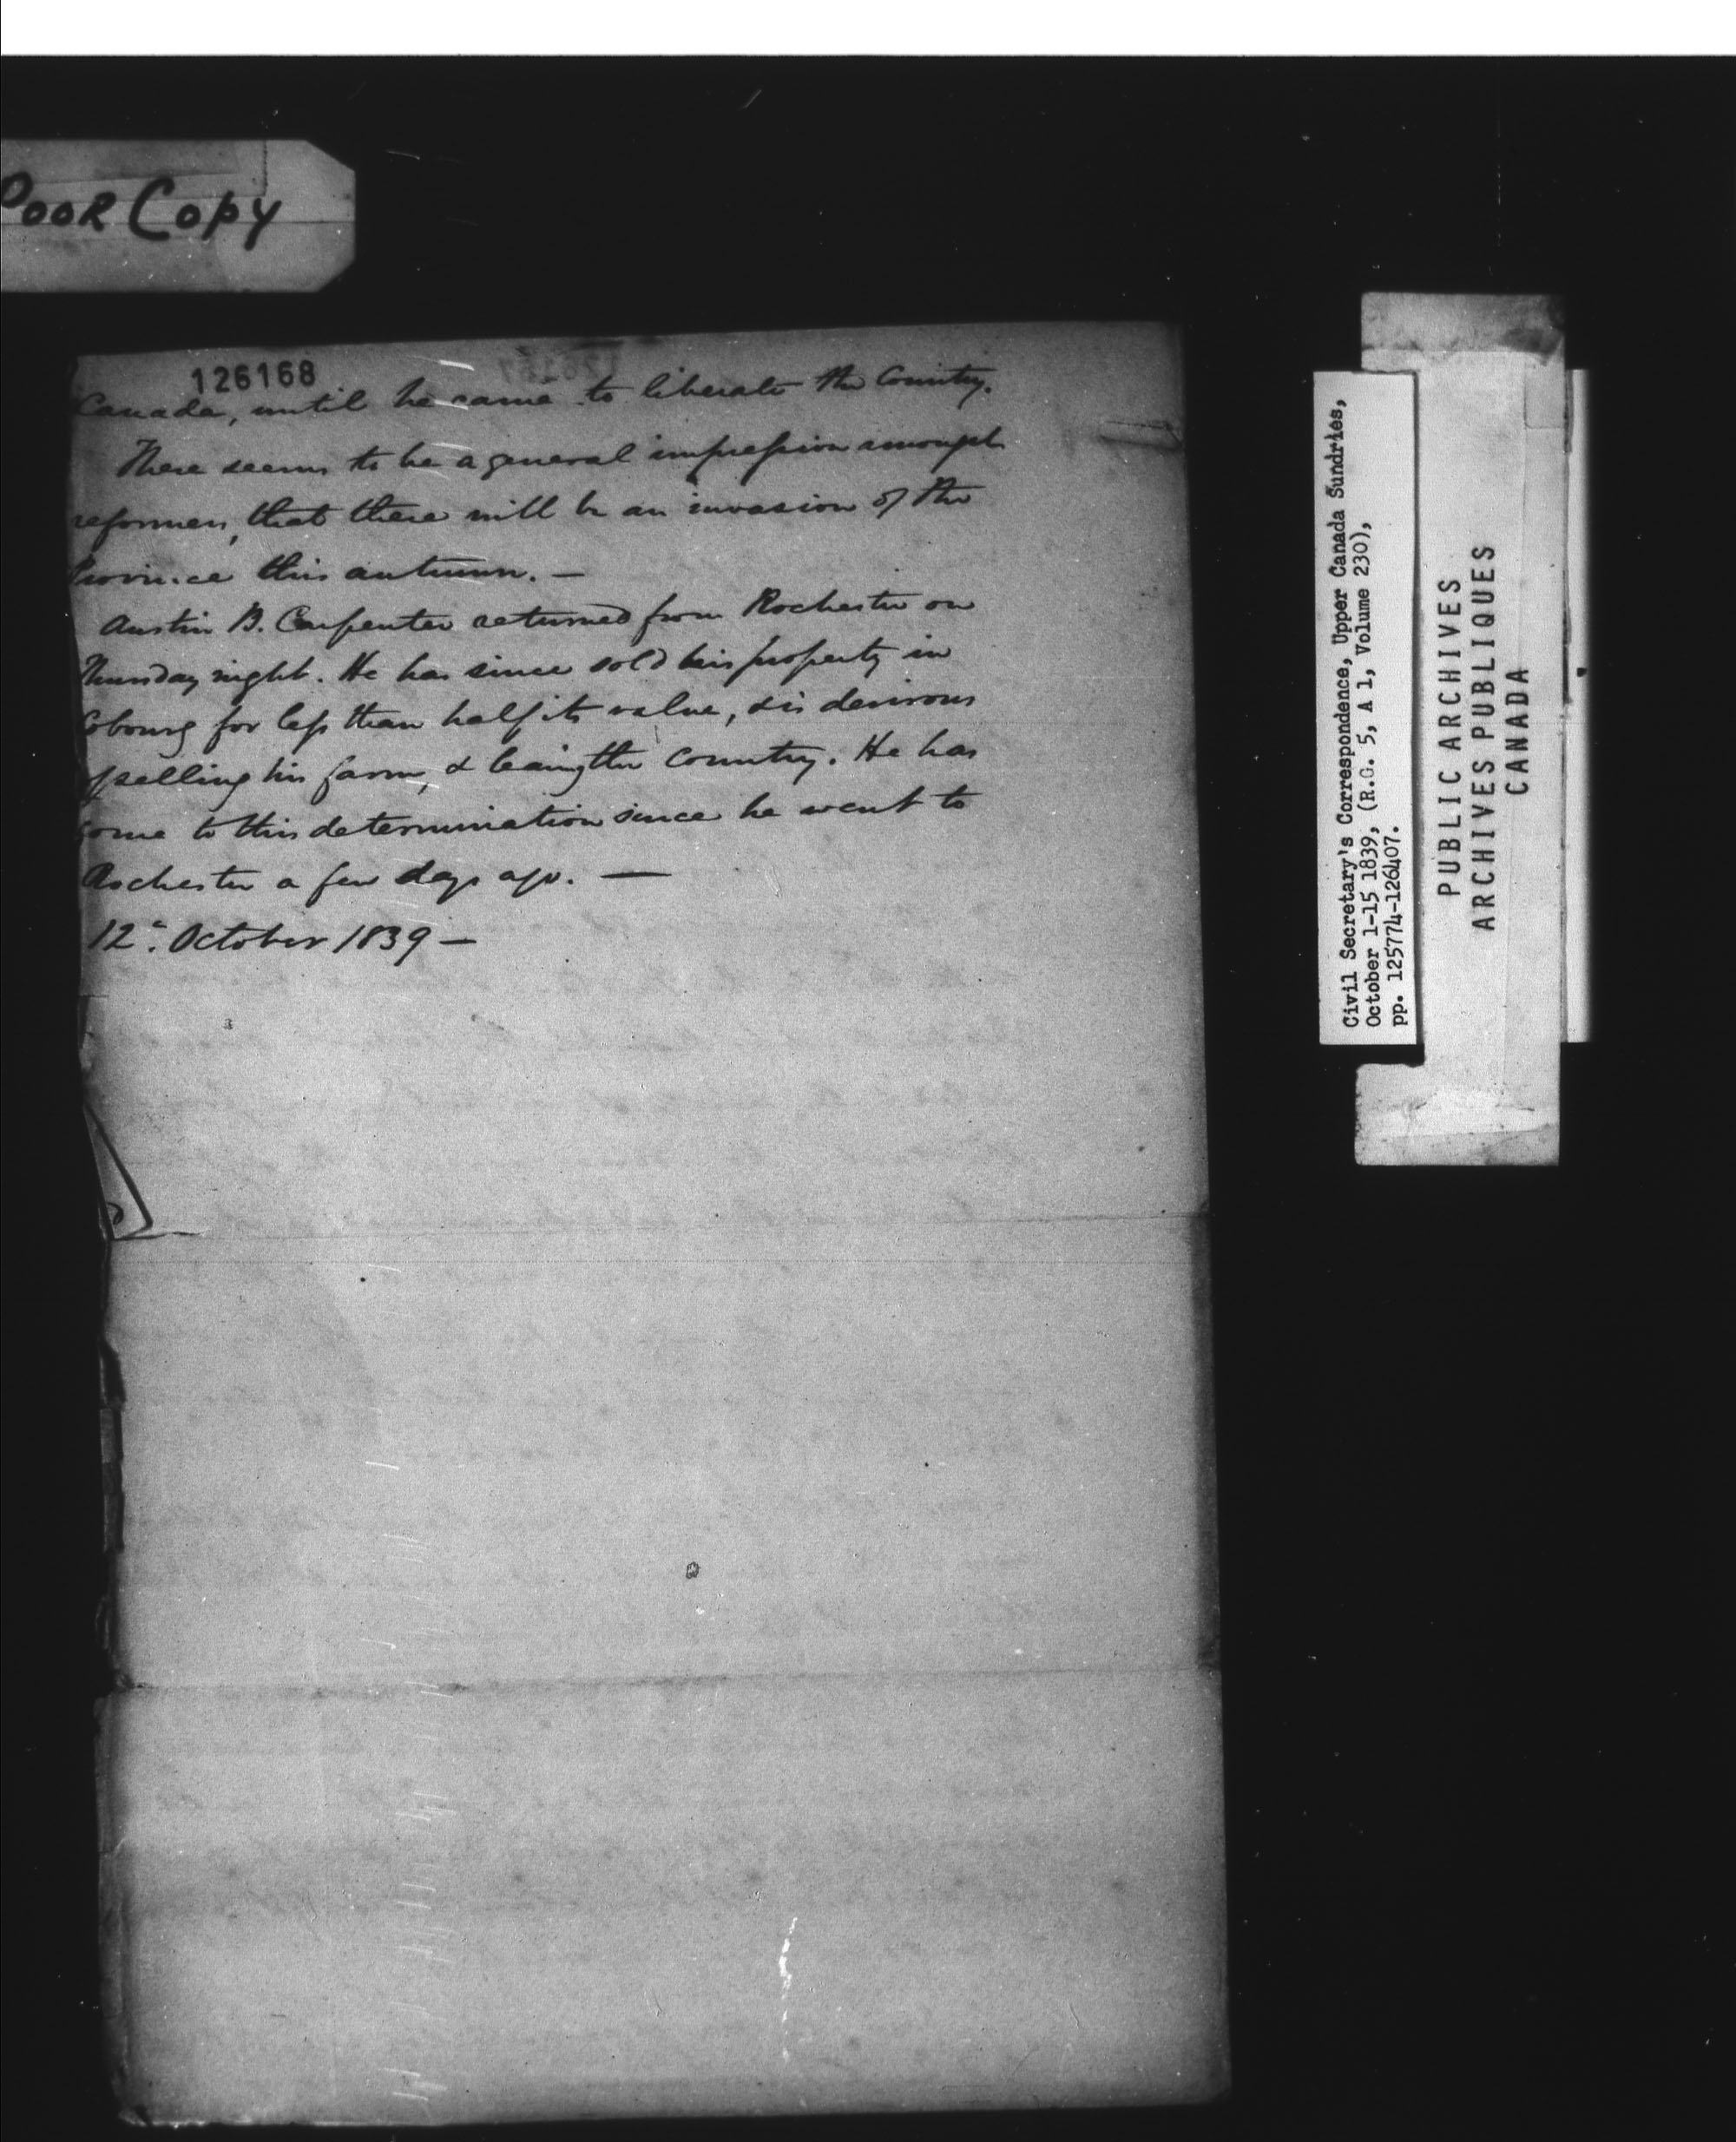 Poor Copy
126168
Canada, until he came to liberate the Country.
There seems to be a general impression amongst
reformers, that there will be an invasion of the
Province this autumn. —
Austin B. Carpenter returned from Rochester on
Thursday night. He has since sold his property in
Cobourg for less than half its value, & is desirous
of selling his farm, & leaving the Country. He has
come to this determination since he went to
Rochester a few days ago. —
12th October 1839 —
Civil Secretary's Correspondence, Upper Canada Sundries,
October 1-15 1839, (R.G. 5, A 1, Volume 230),
pp. 125774-126407.
PUBLIC ARCHIVES
ARCHIVES PUBLIQUES
CANADA